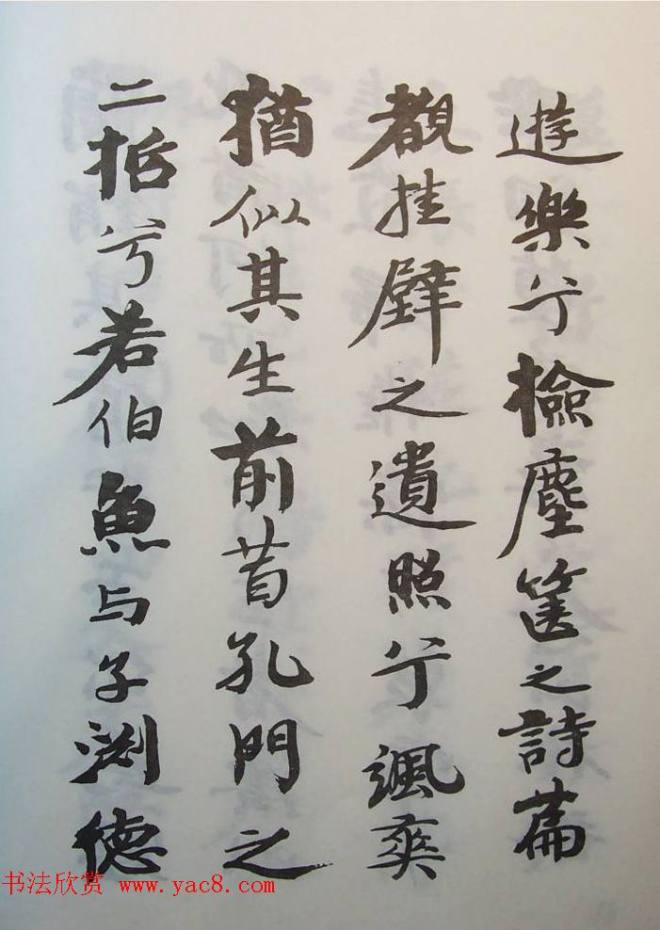 遊樂兮檢塵篋之詩篇
覩挂壁之遺照兮颯爽
猶似其生前昔孔門之
二哲兮若伯魚与子渊德
书法欣赏 www.yac8.com